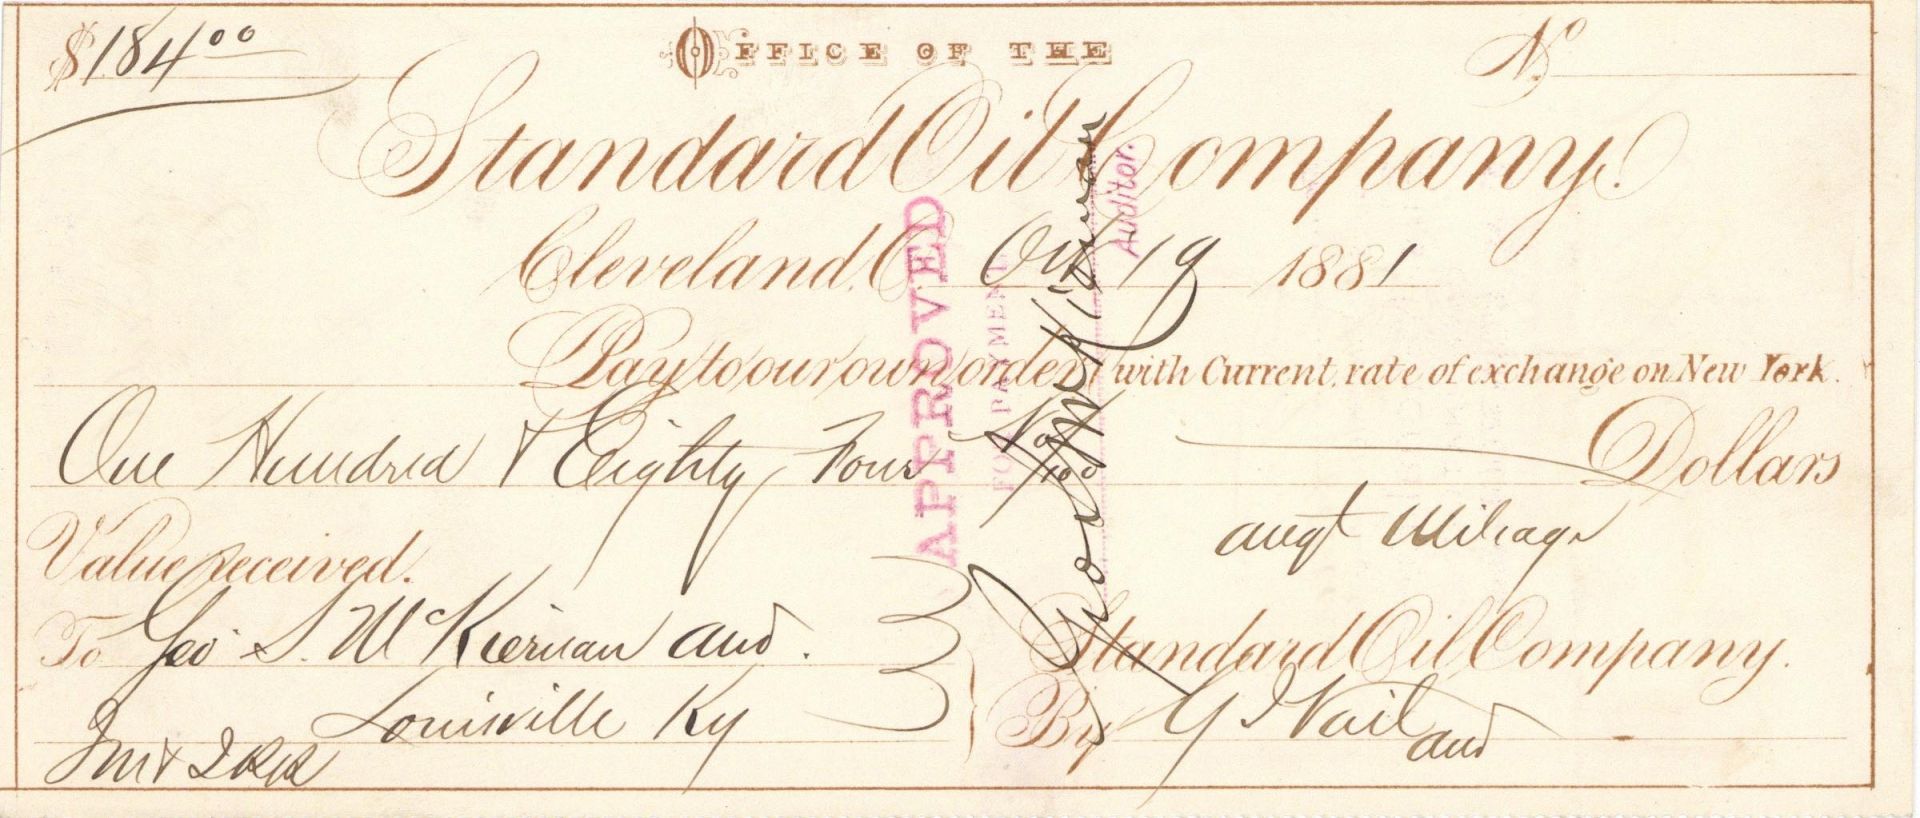 $184.00
OFFICE OF THE
No
Standard Oil Company.
Cleveland, O. Oct 19 1881
Pay to our own order, with Current rate of exchange on New York.
One Hundred & Eighty Four No/100 Dollars
Value received.
augt Mileage
To Geo. S. McKiernan aud.
Standard Oil Company.
Louisville Ky
By G Vail aud
APPROVED
FOR PAYMENT
McKiernan
Auditor.